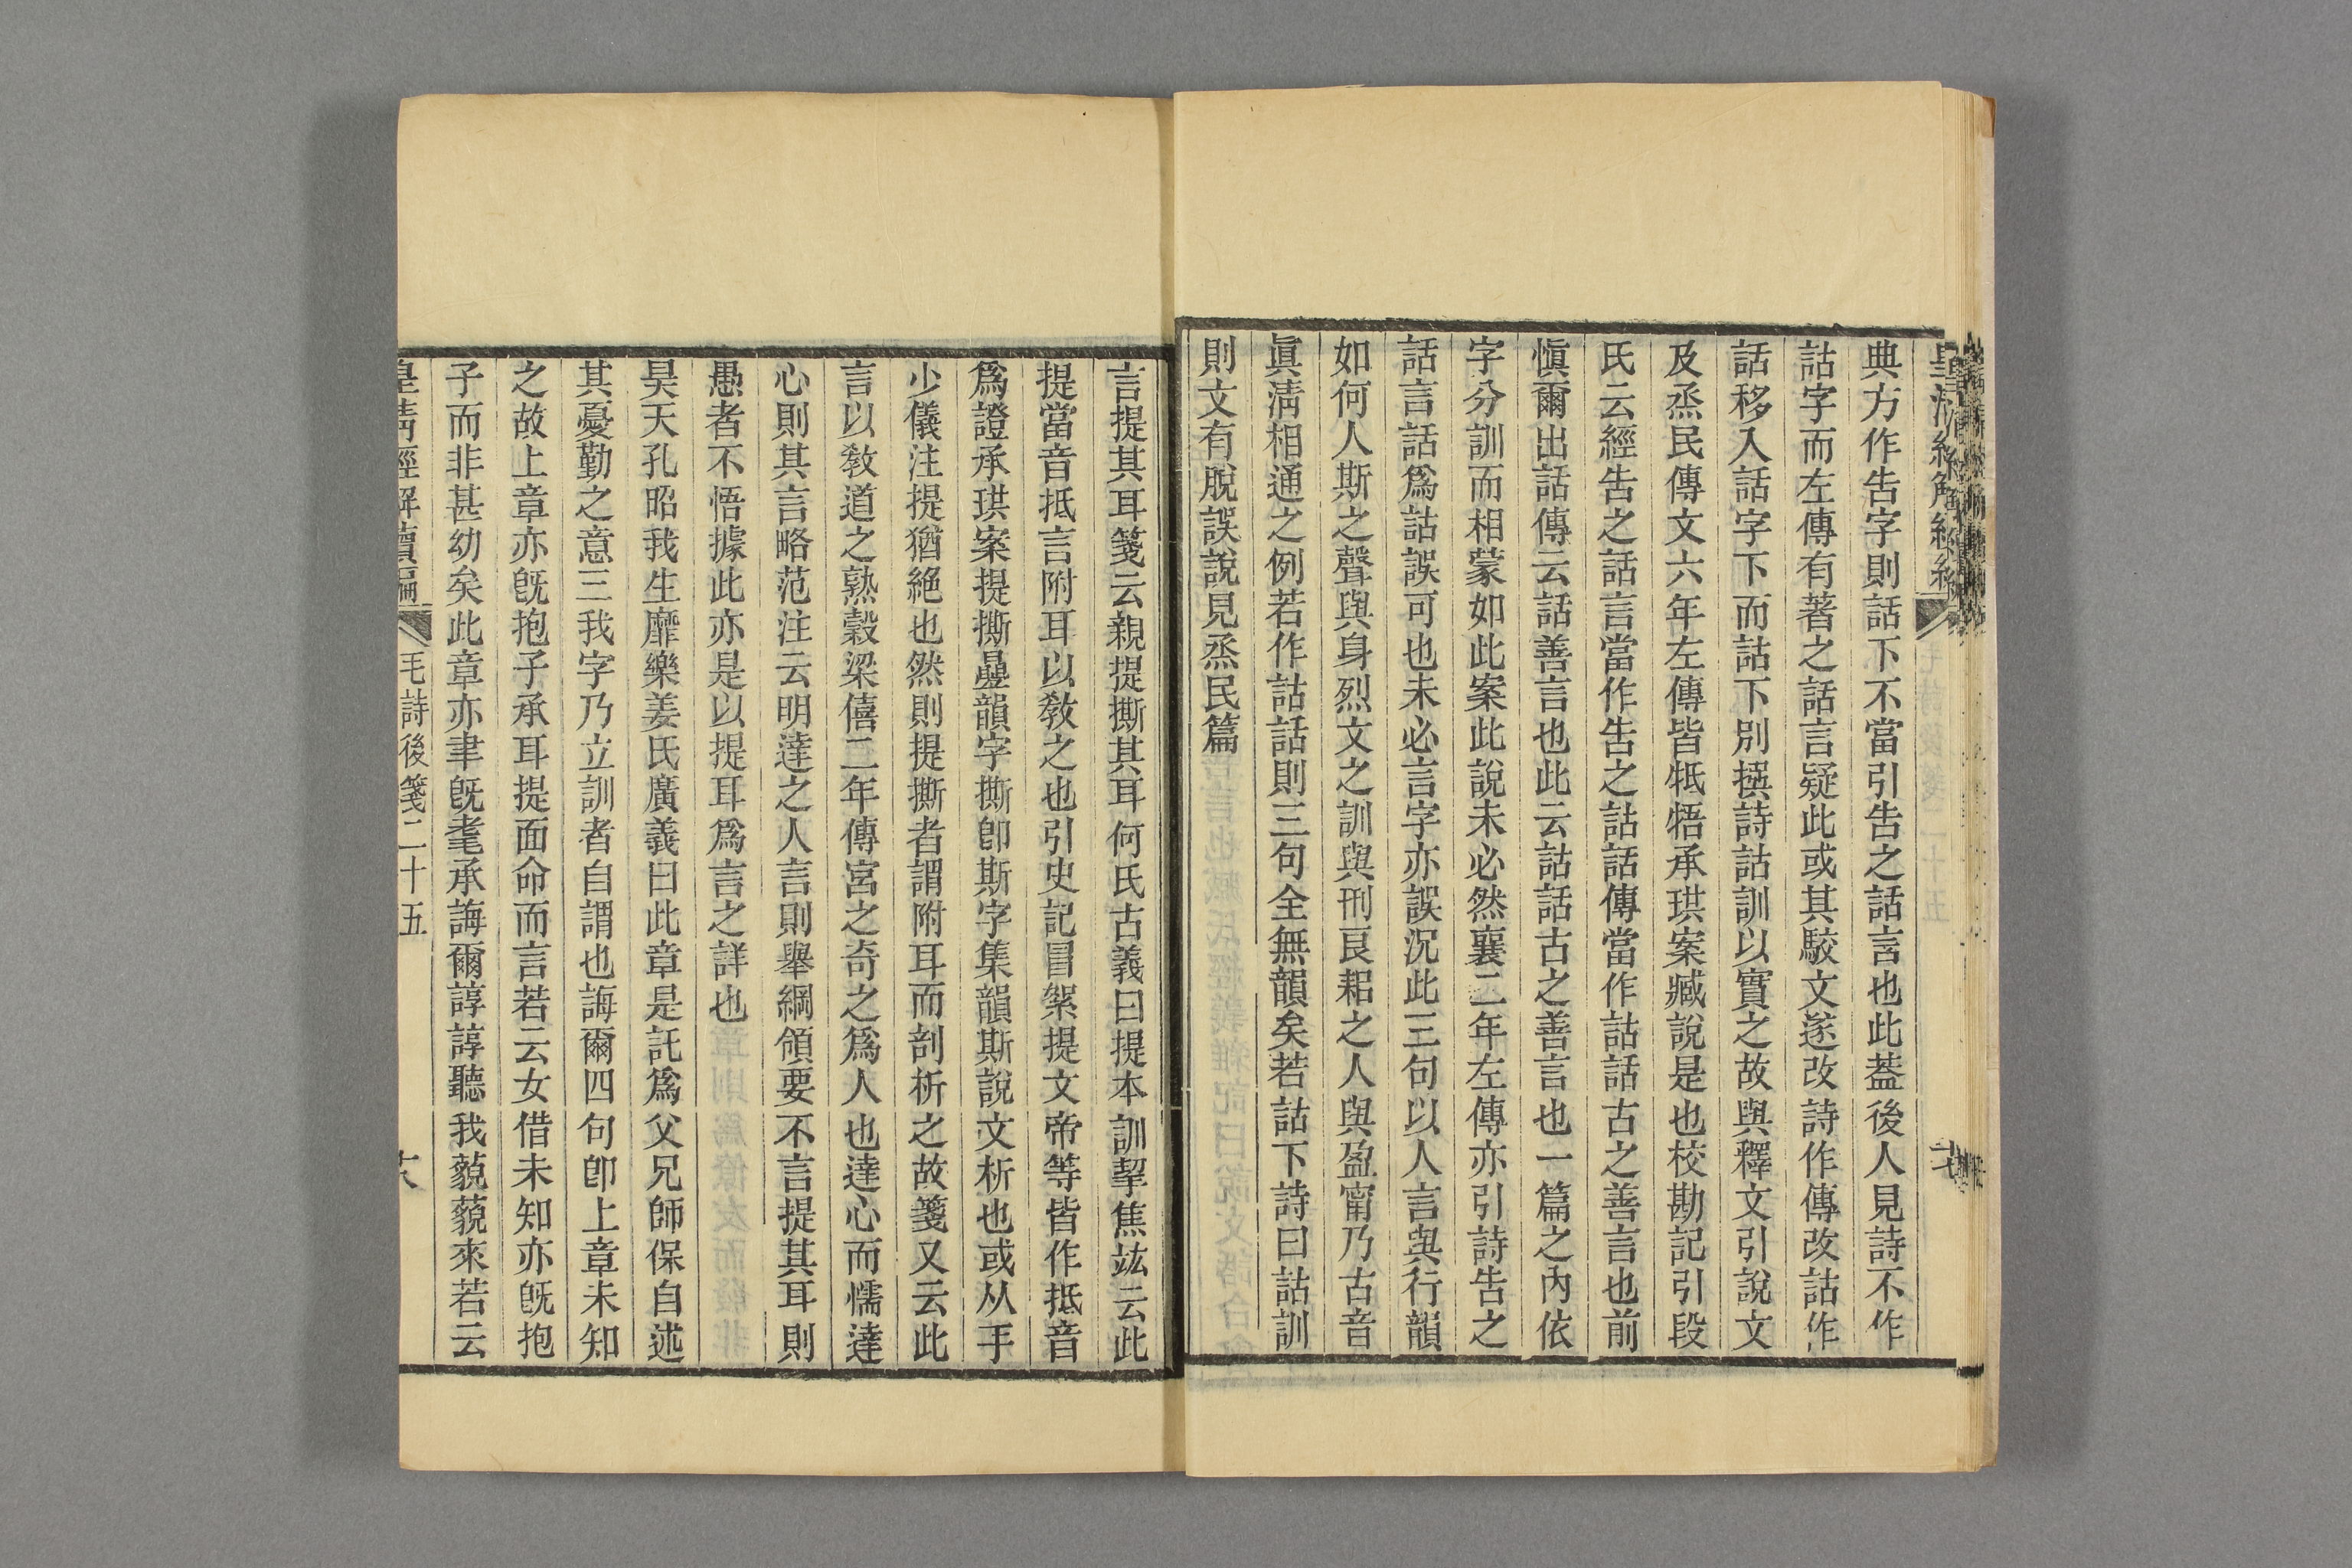 典方作告字則話下不當引告之話言也此葢後人見詩不作
詁字而左傳有著之話言疑此或其駮文遂改詩作傳改詁作
話移入話字下而詁下別撰詩詁訓以實之故與釋文引說文
及烝民傳文六年左傳皆牴牾承珙案臧說是也校勘記引段
氏云經告之話言當作告之詁話傳當作詁話古之善言也前
愼爾出話傳云話善言也此云詁話古之善言也一篇之內依
字分訓而相蒙如此案此說未必然襄二年左傳亦引詩告之
話言話爲詁誤可也未必言字亦誤況此三句以人言與行韻
如何人斯之聲與身烈文之訓與刑艮耜之人與盈甯乃古音
眞淸相通之例若作詁話則三句全無韻矣若詁下詩曰詁訓
則文有脫誤說見烝民篇
言提其耳箋云親提撕其耳何氏古義曰提本訓挈焦竑云此
提當音抵言附耳以敎之也引史記冒絮提文帝等皆作抵音
爲證承珙案提撕疊韻字撕卽斯字集韻斯說文析也或从手
少儀注提猶絕也然則提撕者謂附耳而剖析之故箋又云此
言以敎道之熟穀梁僖二年傳宮之奇之爲人也達心而懦達
心則其言略范注云明達之人言則舉綱領要不言提其耳則
愚者不悟據此亦是以提耳爲言之詳也
昊天孔昭我生靡樂姜氏廣義曰此章是託爲父兄師保自述
其憂勤之意三我字乃立訓者自謂也誨爾四句卽上章未知
之故上章亦旣抱子承耳提面命而言若云女借未知亦旣抱
子而非甚幼矣此章亦聿旣耄承誨爾諄諄聽我藐藐來若云
皇淸經解續編
毛詩後箋二十五
十八